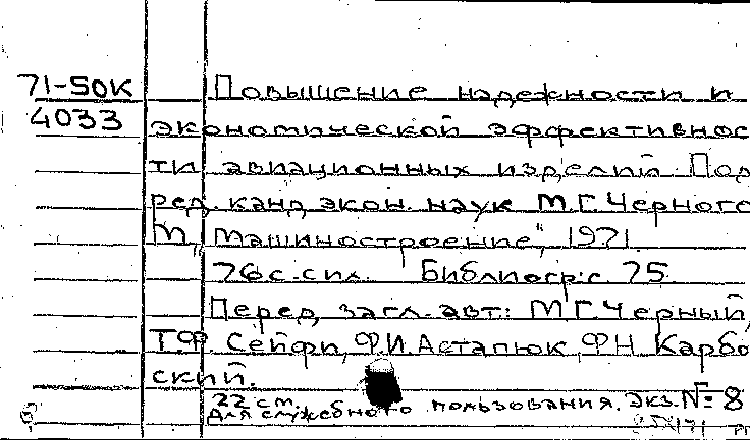 71-50К Повышение надежности и
4033 экономической эффективнос
ти авиационных изделий. Под
ред. канд. экон. наук М.Г. Черного
М., "Машиностроение", 1971.
76 с. с ил. Библиогр: с. 75.
Перед загл. авт: М.Г. Черный,
Т.Ф. Сейфи, Ф.И. Астапюк, Ф.Н. Карбо
ский.
22 см.
Для служебного пользования. Экз. № 8